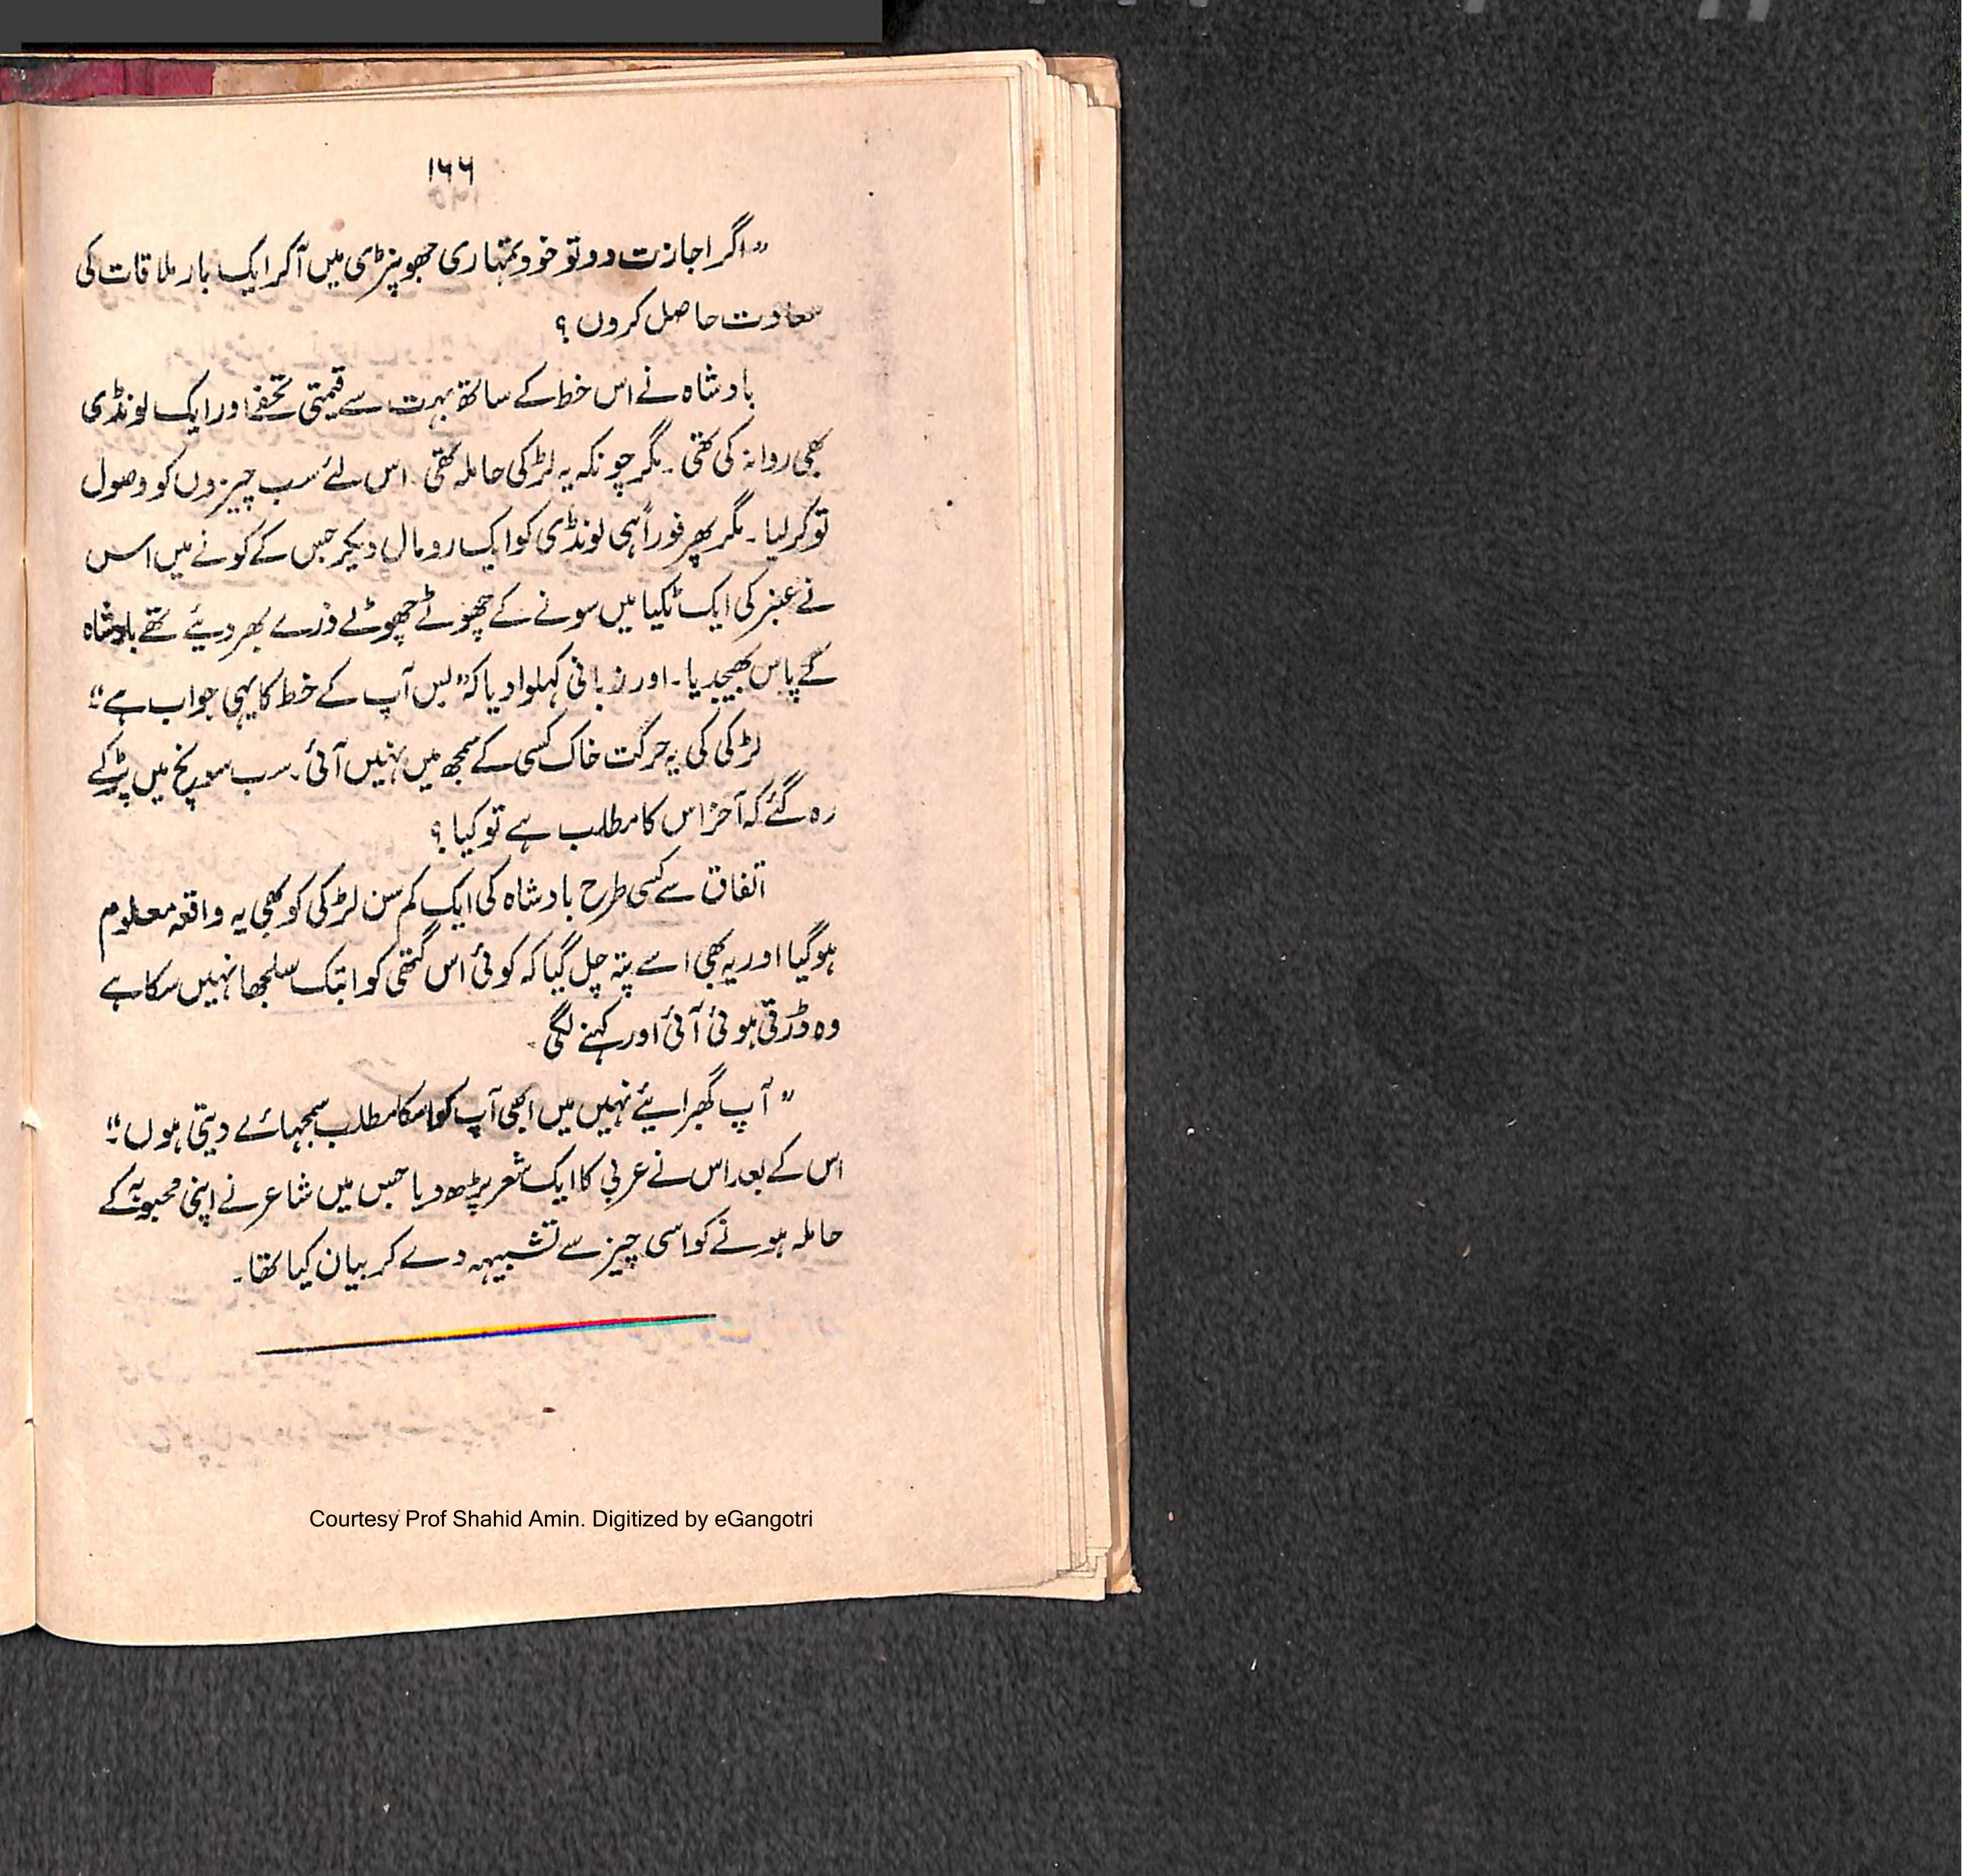 ۱۶۶
"اگر اجازت دو تو خود تمہاری جھونپڑی میں آکر ایک بار ملاقات کی
سعادت حاصل کروں ؟
بادشاہ نے اس خط کے ساتھ بہت سے قیمتی تحفے اور ایک لونڈی
بھی روانہ کی تھی ۔ مگر چونکہ یہ لڑکی حاملہ تھی ۔ اس لئے سب چیزوں کو وصول
تو کرلیا ۔ مگر پھر فوراً ہی لونڈی کو ایک رومال دیکر جس کے کونے میں اس
نے عنبر کی ایک ٹکیا میں سونے کے چھوٹے چھوٹے ذرے بھر دیئے تھے بادشاہ
کے پاس بھیجدیا ۔ اور زبانی کہلوا دیا کہ "بس آپ کے خط کا یہی جواب ہے"
لڑکی کی یہ حرکت خاک کسی کے سمجھ میں نہیں آئی ۔ سب سوچ میں پڑ کے
رہ گئے کہ آخر اس کا مطلب ہے تو کیا ؟
اتفاق سے کسی طرح بادشاہ کی ایک کم سن لڑکی کو بھی یہ واقعہ معلوم
ہوگیا اور یہ بھی اسے پتہ چل گیا کہ کوئی اس گتھی کو ابتک سلجھا نہیں سکا ہے
وہ دڑتی ہوئی آئی اور کہنے لگی ۔
" آپ گھبرایئے نہیں میں ابھی آپ کو اسکا مطلب سمجھائے دیتی ہوں "
اس کے بعد اس نے عربی کا ایک شعر پڑھ دیا جس میں شاعر نے اپنی محبوبہ کے
حاملہ ہونے کو اسی چیز سے تشبیہہ دے کر بیان کیا تھا ۔
Courtesy Prof Shahid Amin. Digitized by eGangotri